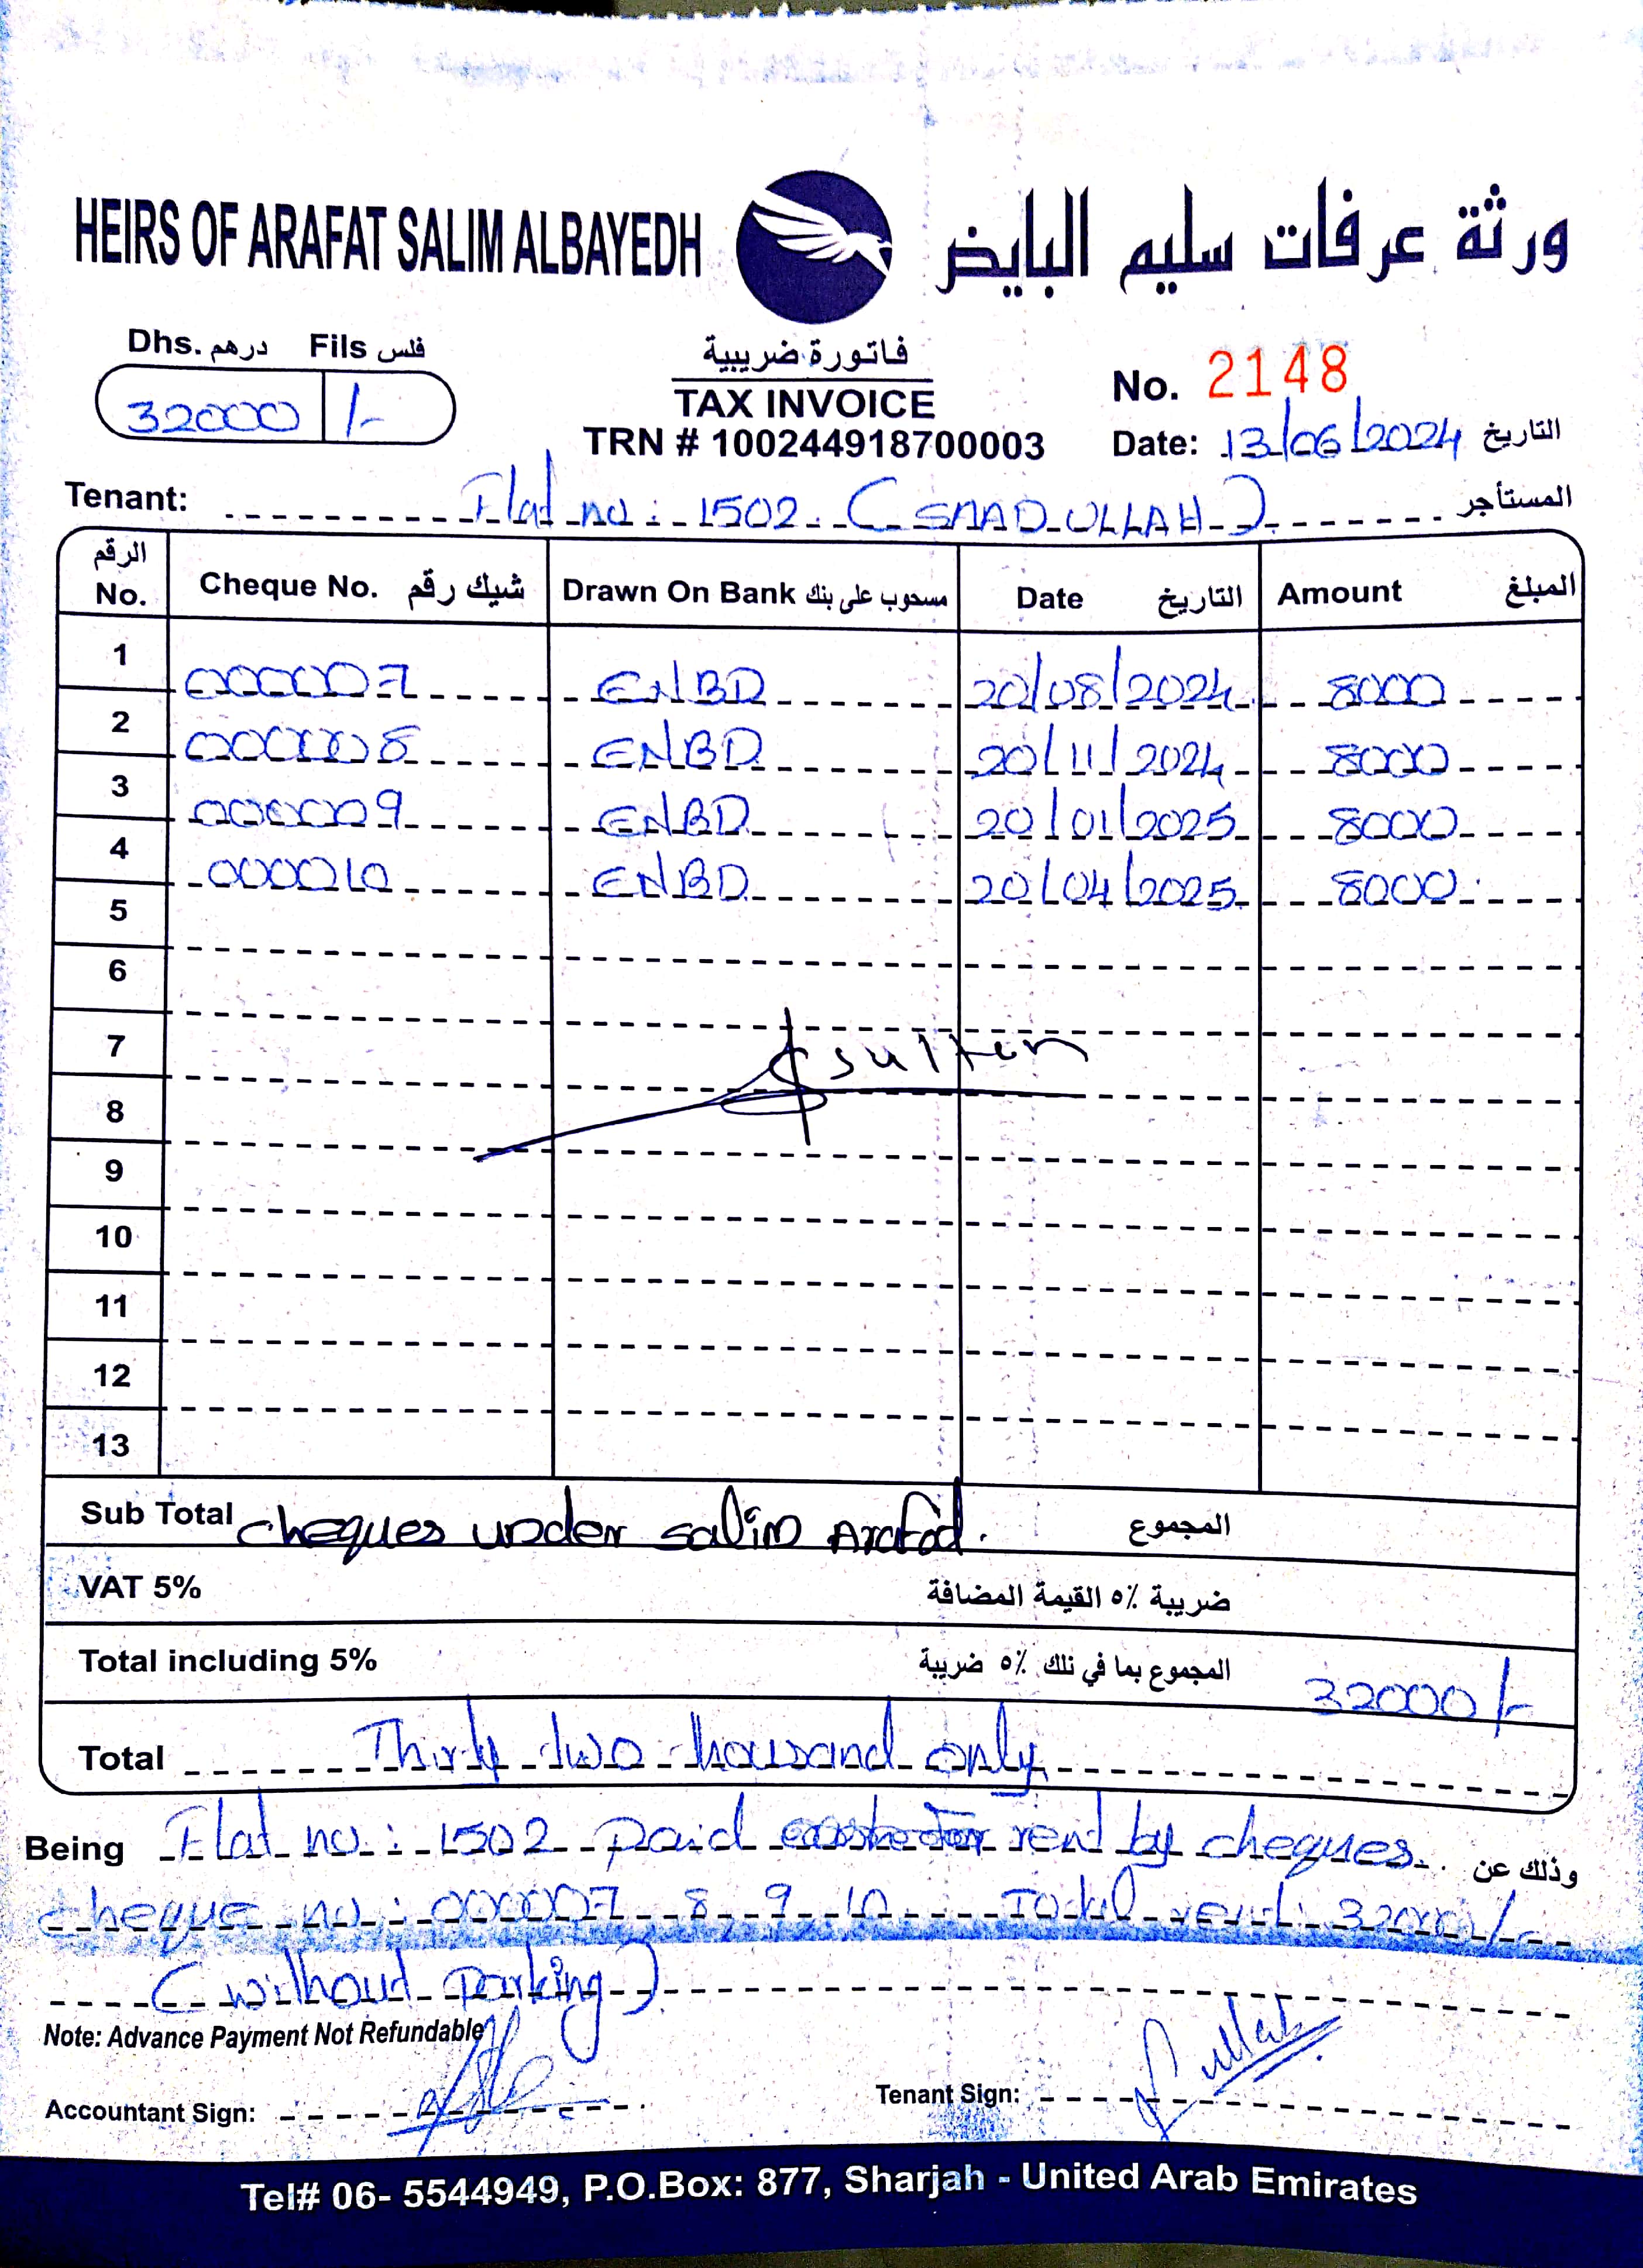 HEIRS OF ARAFAT SALIM ALBAYEDH ورثة عرفات سليم البايض
Dhs. درهم Fils فلس
32000 /-
فاتورة ضريبية
TAX INVOICE
TRN # 100244918700003
No. 2148
Date: 13/06/2024 التاريخ
Tenant: Flat no: 1502. (SAADULLAH) المستأجر
الرقم No. Cheque No. شيك رقم Drawn On Bank مسحوب على بنك Date التاريخ Amount المبلغ
1 000007 ENBD 20/08/2024 8000
2 000008 ENBD 20/11/2024 8000
3 000009 ENBD 20/01/2025 8000
4 000010 ENBD 20/04/2025 8000
5
6
7 sultan
8
9
10
11
12
13
Sub Total cheques under salim Arafad. المجموع
VAT 5% ضريبة ٥٪ القيمة المضافة
Total including 5% المجموع بما في ذلك ٥٪ ضريبة 32000/-
Total Thirty two thousand only
Being Flat no: 1502 paid rent by cheques. وذلك عن
cheque no: 000007 8 9 10 Total rent: 32000/-
(without parking)
Note: Advance Payment Not Refundable
Accountant Sign: Tenant Sign:
Tel# 06- 5544949, P.O.Box: 877, Sharjah - United Arab Emirates